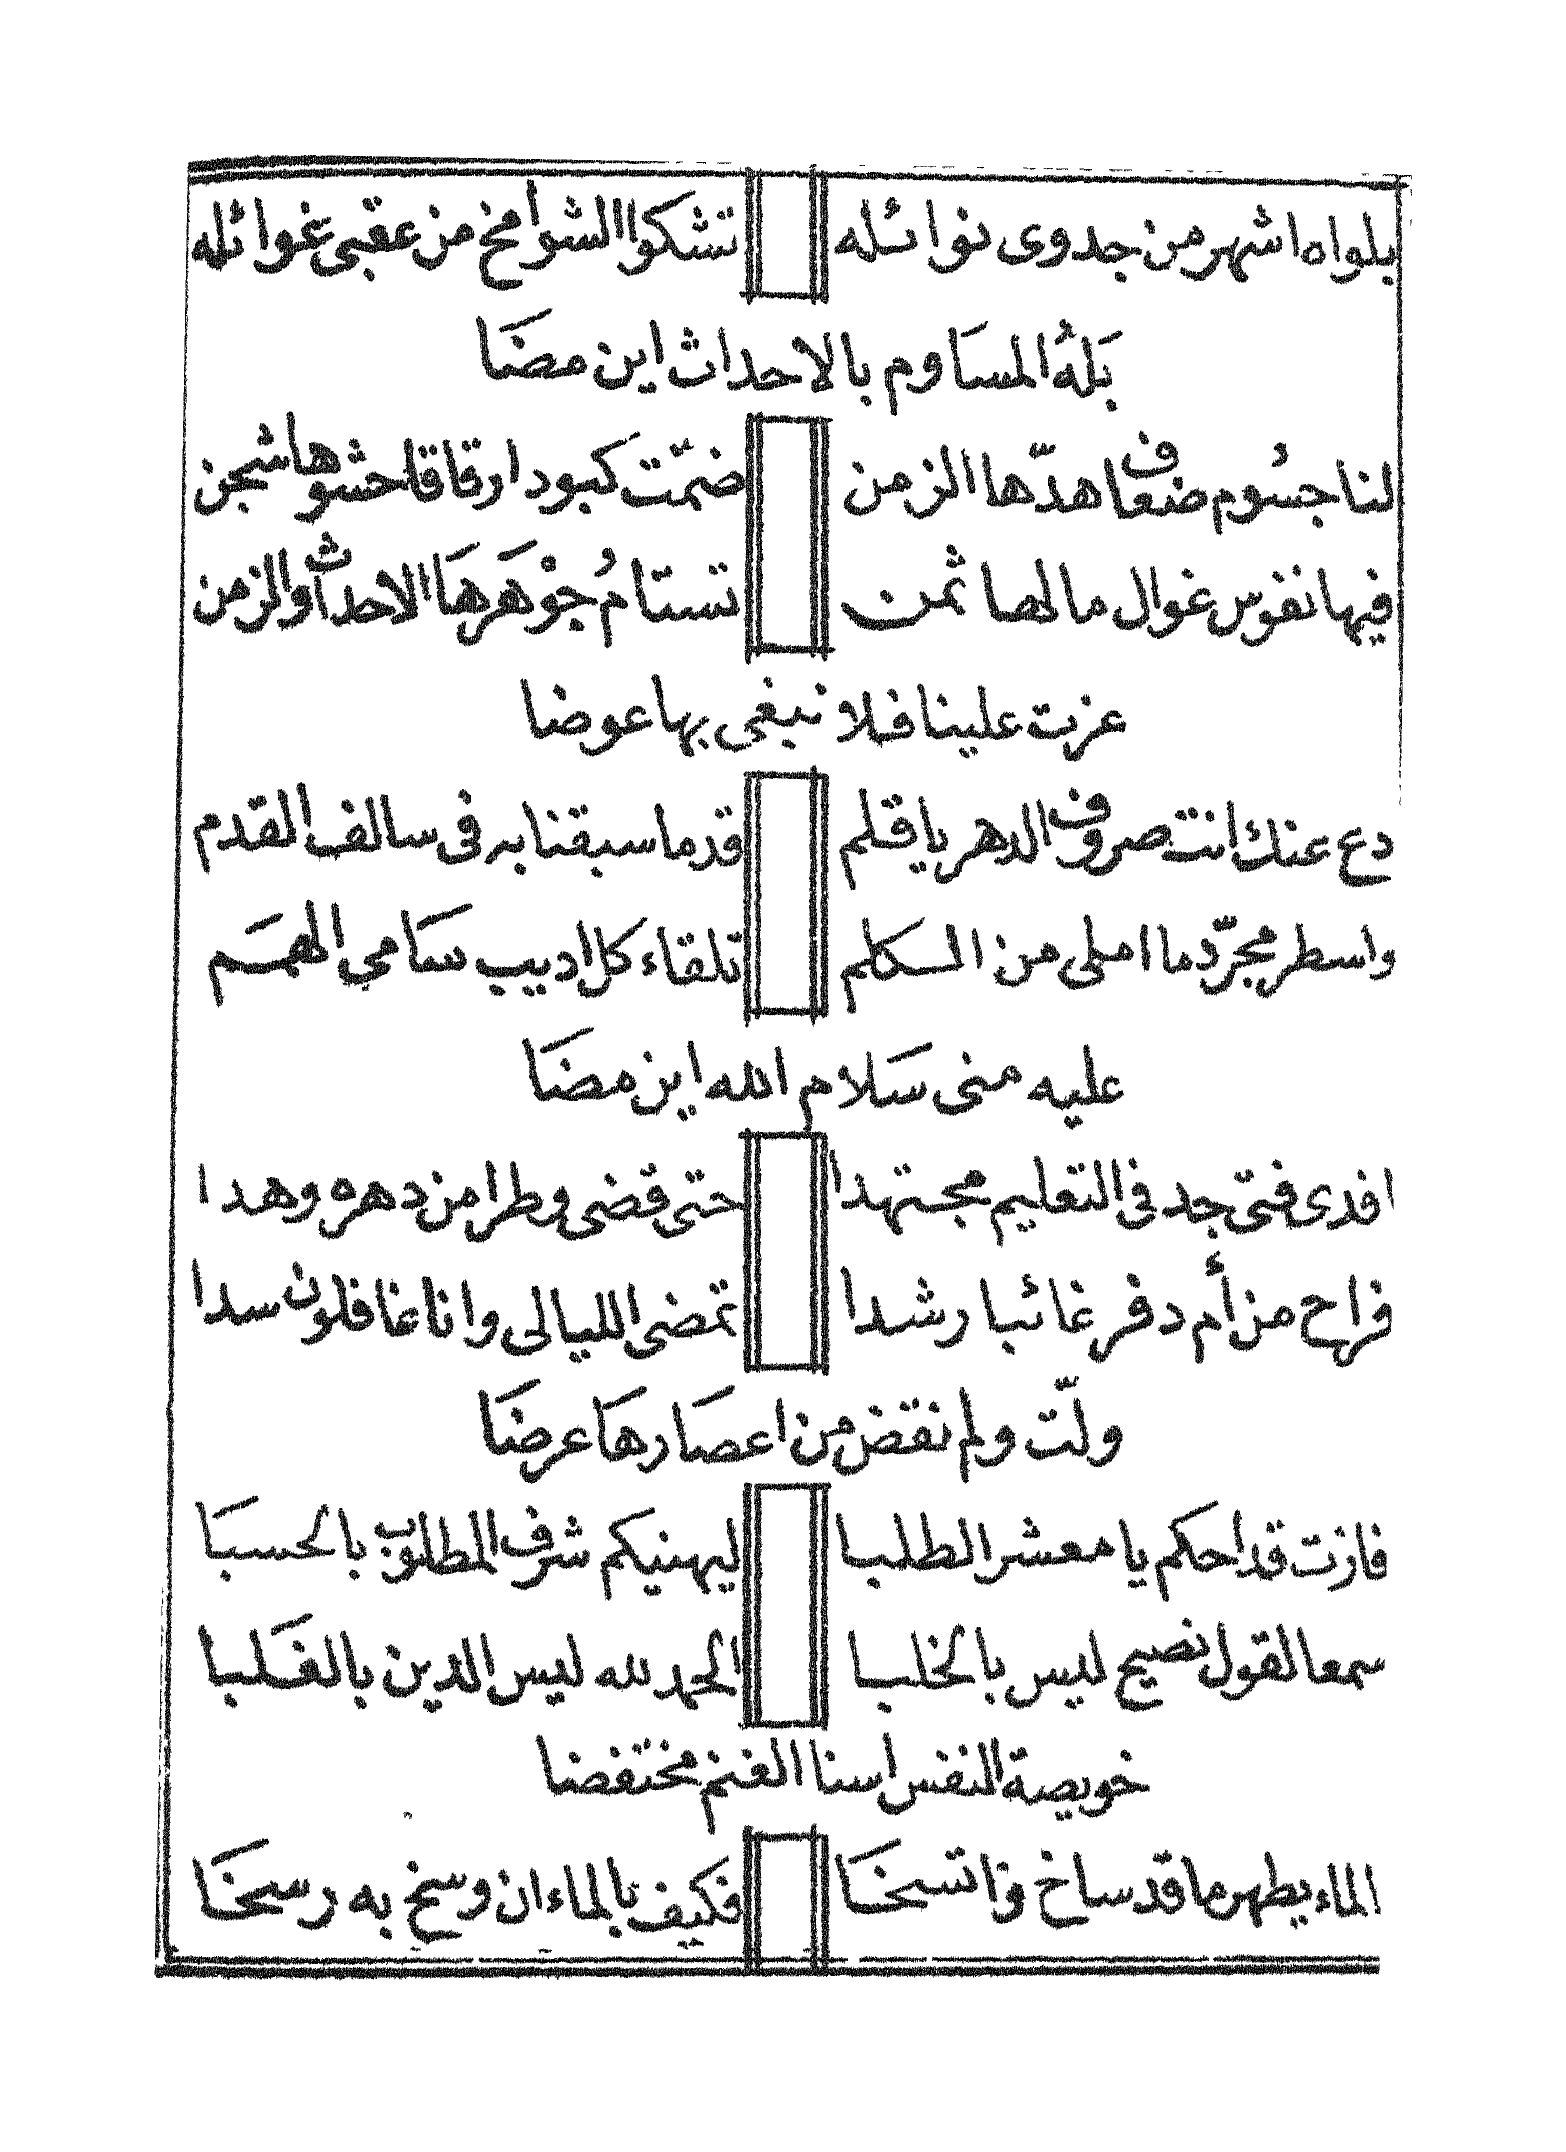 بلواه اشهر من جدوى نوائله تشكوا الشوأمخ من عقبى غوائله
بَلهُ المسَاوم بالاحداث اين مضَا
لنا جسُوم ضعاف هدّها الزمن ضمّت كبودا رقاقا حشوها شجن
فيها نفوس غوال مالها ثمن تستامُ جوْهَرهَا الاحداث والزمن
عزت علينا فلا نبغى بها عوضا
دع عنك انت صروف الدهر يا قلم قدما سبقنا به فى سالف القدم
واسطر مجرّدما املى من الكلم تلقاء كل اديب سَامي الهمَم
عليه منى سَلام الله اين مضَا
افدى فتى جد فى التعليم مجتهدا حتى قضى وطرا من دهره وهدا
فراح من أُم دفر غائبا رشدا تمضى الليالى وانا غافلون سدا
ولّت ولم نقض من اعصَارهَا عرضَا
فازت قداحكم يا معشر الطلبا ليهنيكم شرف المطلوب بالحسبَا
سمعا لقول نصيح ليس بالخلبا الحمد لله ليس الدين بالغَلبا
خويصة النفس اسنا الغنم مختفضا
الماء يطهر ما قد ساخ واتسخَا فكيف بالماء ان وسخ به رسخَا